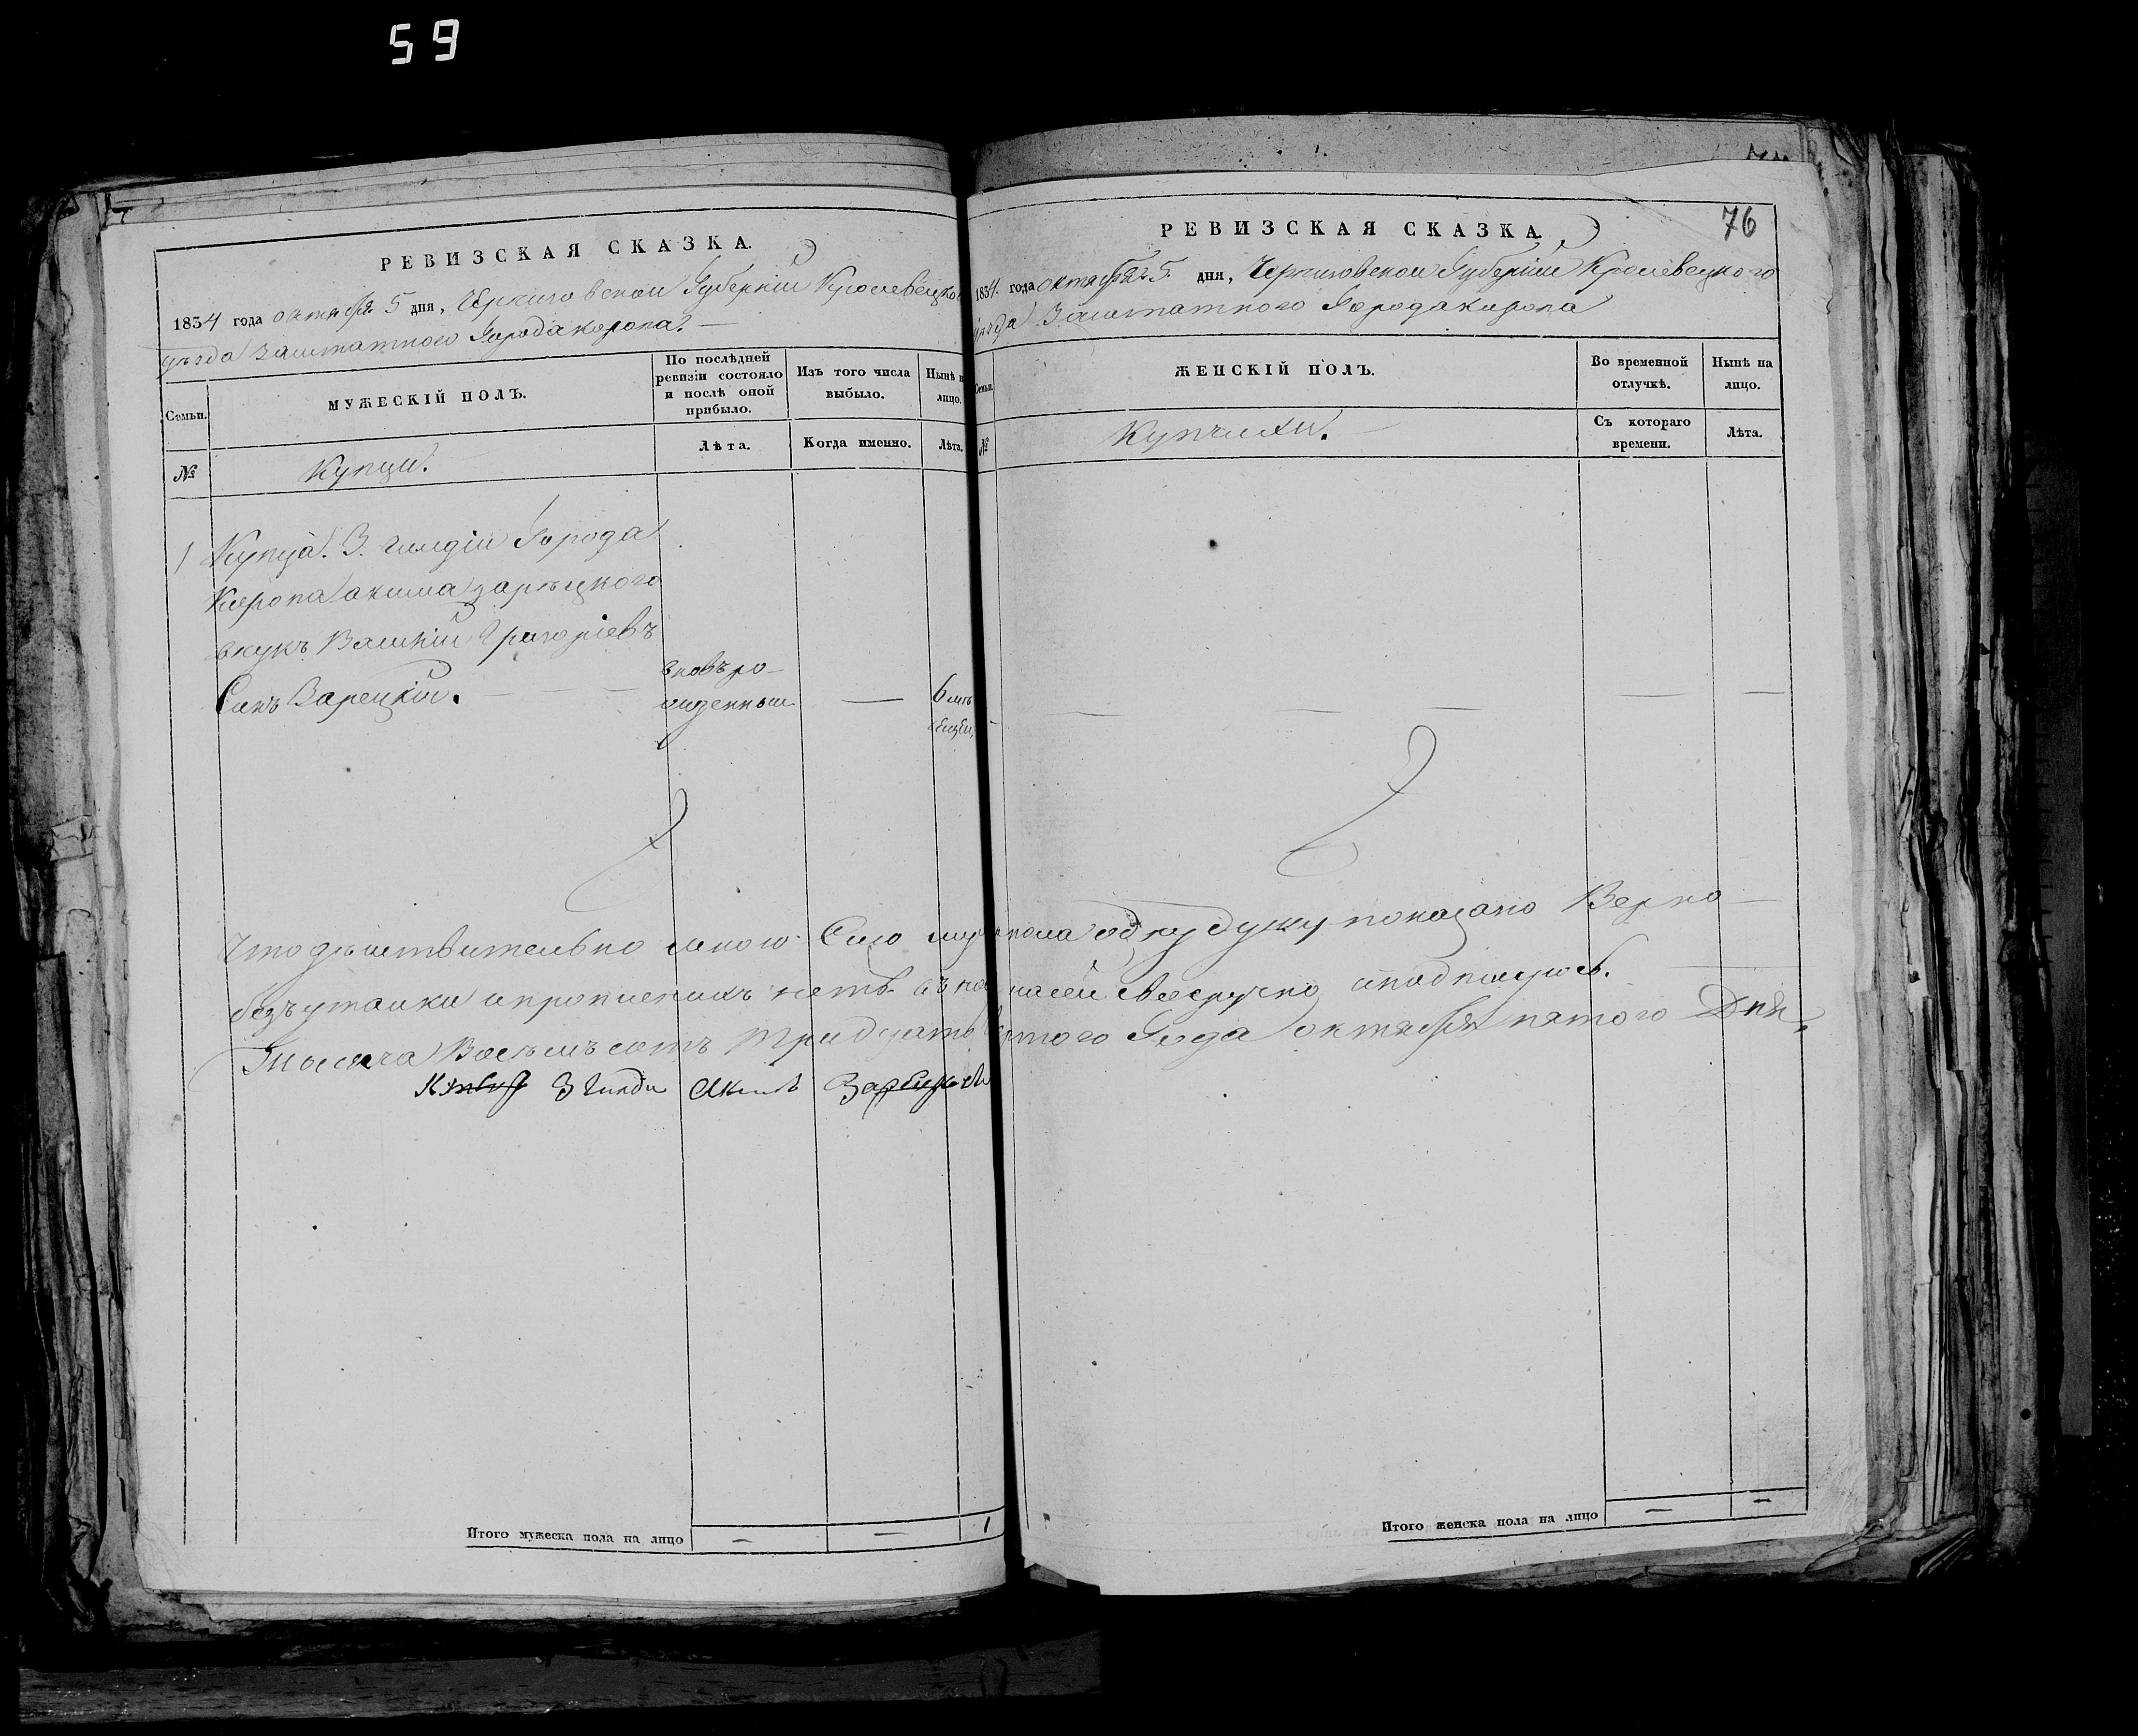 59
РЕВИЗСКАЯ СКАЗКА.
1834 года октября 5 дня, Черниговской Губерніи Кролевецко
уезда Заштатного Города Коропа.
Семьи.
МУЖЕСКІЙ ПОЛЪ.
По послѣдней ревизіи состояло и послѣ оной прибыло.
Изъ того числа выбыло.
Нынѣ н лицо.
№
Купци.
Лѣта.
Когда именно.
Лѣта.
1 Купца 3. гилдіи Города
Коропа акима зарецкого
внукъ Василій Григоріевъ
Синъ Зарецкій.
вновъ ро-
жденный
—
6
Что дѣйствительно мною Сего муж
безъ утайки и прописнихъ нетъ въ
Тысяча Восемъ сотъ тридцать
3 Гилди Акимъ Зарецкой
Итого мужеска пола на лицо — — 1
76
РЕВИЗСКАЯ СКАЗКА.
1834. года октября 5. дня, Черниговской Губерніи Кролевецкого
уезда Заштатного Города Коропа
Семьи.
ЖЕНСКІЙ ПОЛЪ.
Во временной отлучкѣ.
Нынѣ на лицо.
№
Купчихи.
Съ котораго времени.
Лѣта.
пола одну душу показано Верно
своеручно и подпишусь.
Года октября пятого Дня,
Итого женска пола на лицо — —